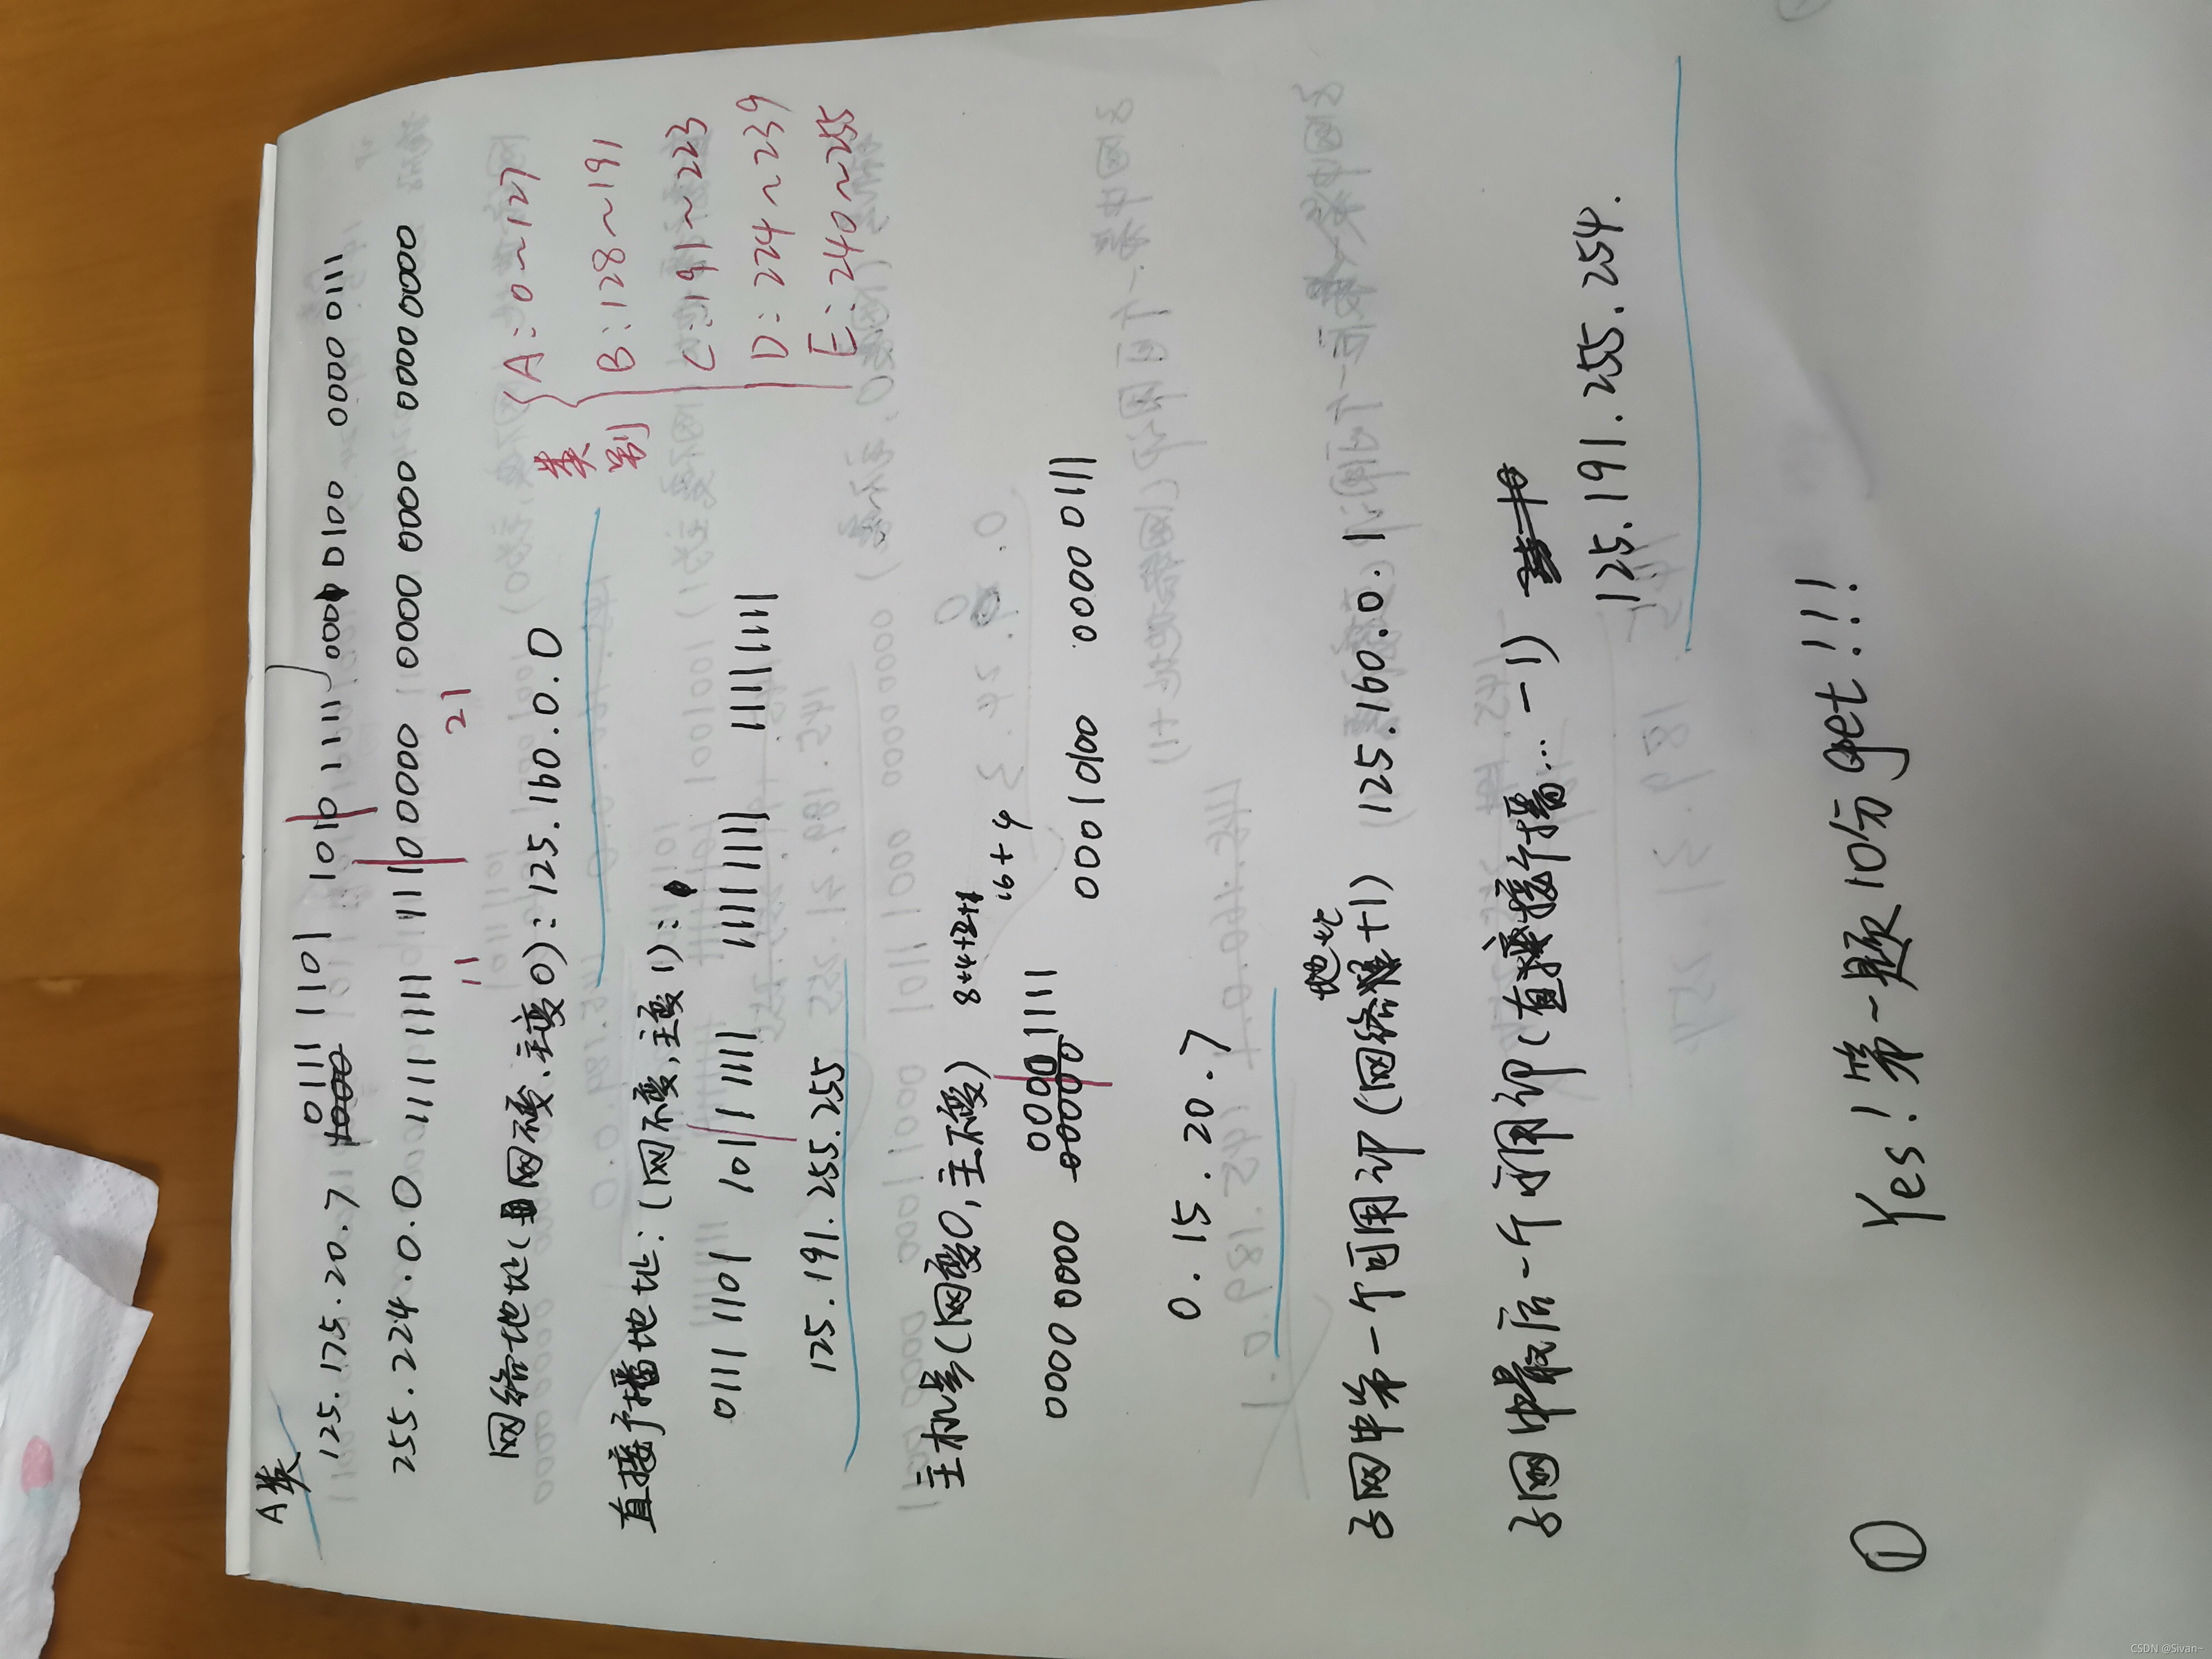 A类
125.175.20.7 0111 1101 1010 1111 0001 0100 0000 0111
255.224.0.0 1111 1111 1110 0000 0000 0000 0000 0000
11 21
网络地址(网不变、主变0):125.160.0.0
类别
A:0~127
B:128~191
C:191~223
D:224~239
E:240~255
直接广播地址:(网不变,主变1):
0111 1101 1011 1111 1111 1111 1111 1111
125.191.255.255
主机号(网变0,主不变) 8+4+2+1 16+4
0000 0000 0000 1111 0001 0100 0000 0111
0.15.20.7
子网中第一个可用IP(网络地址+1) 125.160.0.1
子网中最后一个可用IP(直接广播...-1)
125.191.255.254.
① Yes!第一题10分get!!!!
CSDN @Sivan~